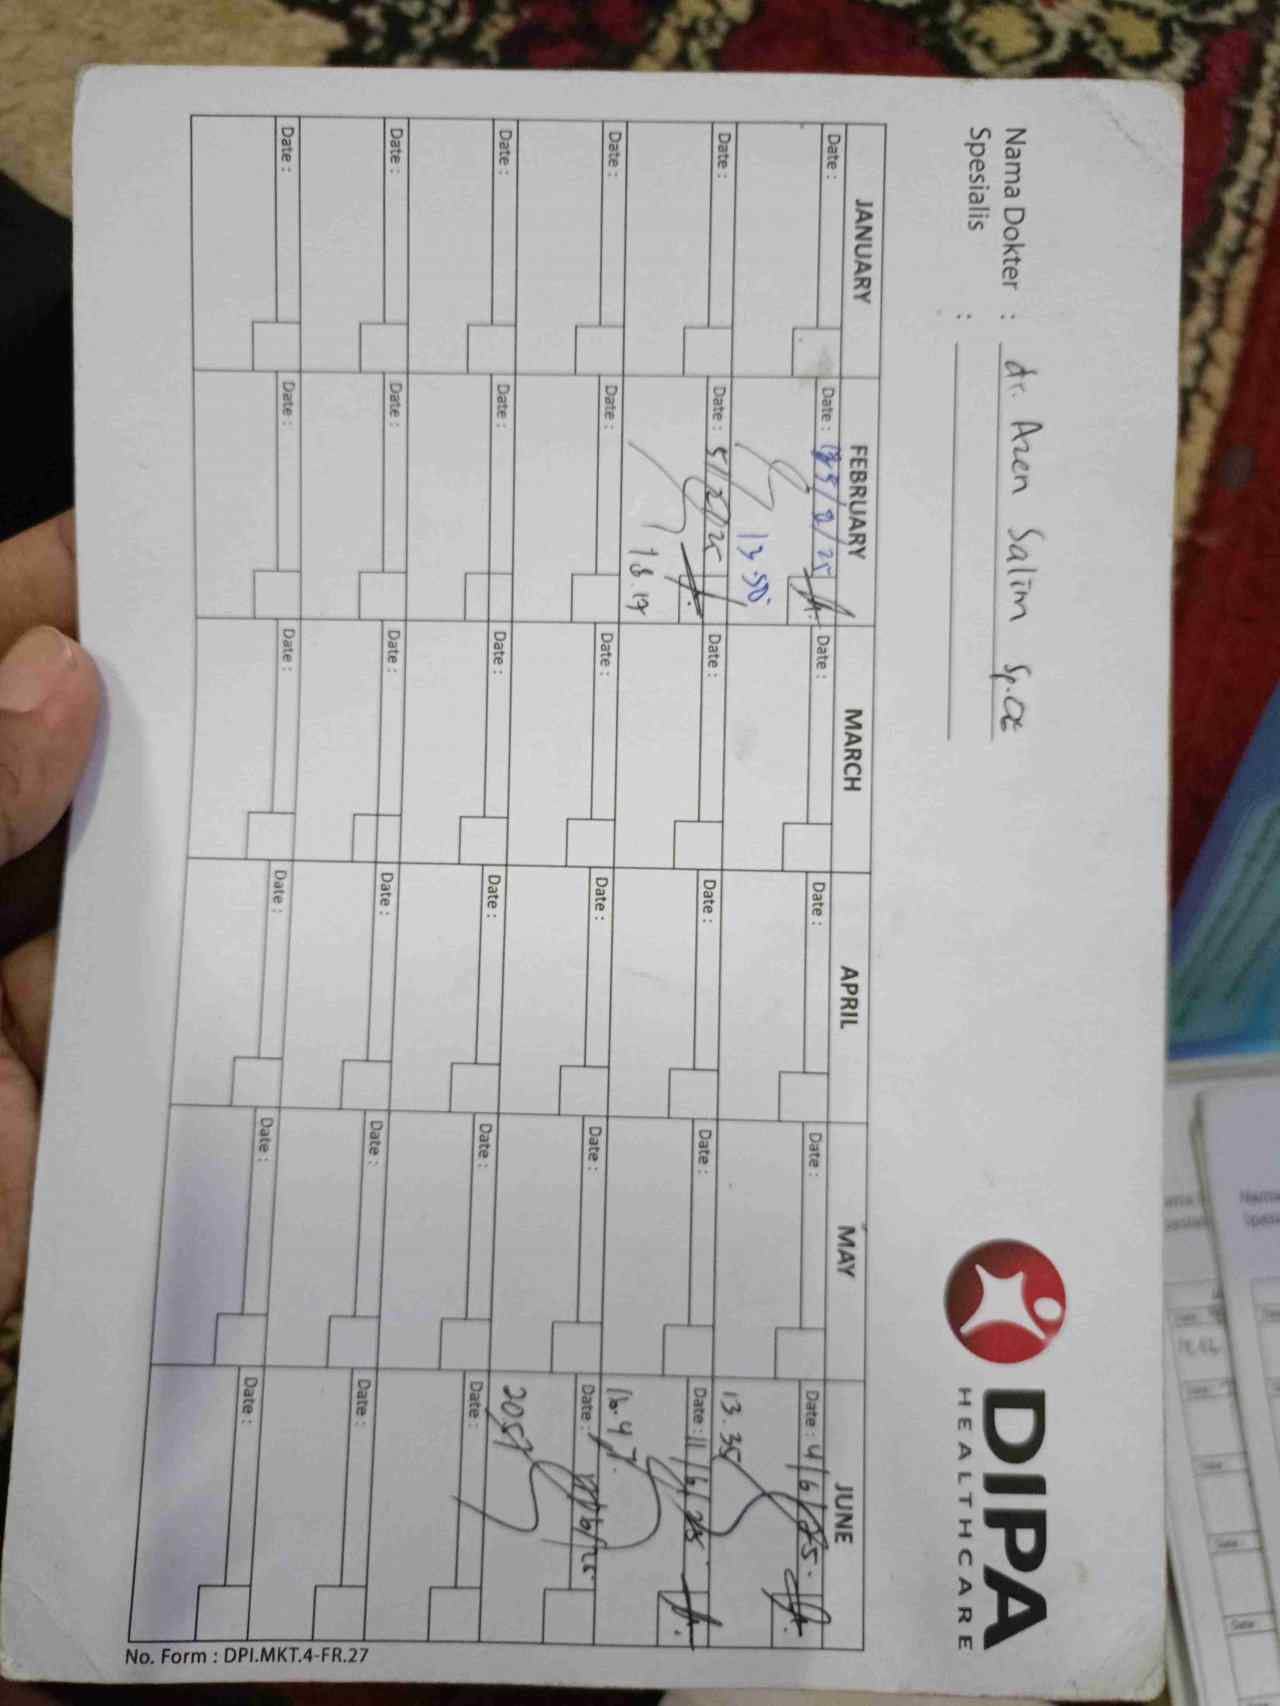 Nama Dokter : dr. Azen Salim Sp.OG
Spesialis :
DIPA
HEALTHCARE
JANUARY FEBRUARY MARCH APRIL MAY JUNE
Date : Date : /2/25 Date : Date : Date : Date : 4/6/25.
13.50 13.35
Date : Date : 5/2/25 Date : Date : Date : Date : 11/6/25
18.17 16.47.
Date : Date : Date : Date : Date : Date : /6/25
20.57
Date : Date : Date : Date : Date : Date :
Date : Date : Date : Date : Date : Date :
Date : Date : Date : Date : Date : Date :
No. Form : DPI.MKT.4-FR.27